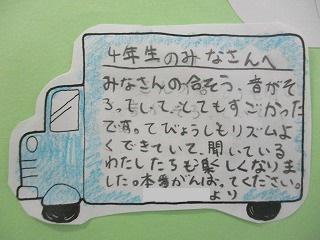 4年生のみなさんへ
みなさんの合そう、音がそ
ろっていて、とてもすごかった
です。てびょうしもリズムよ
くできていて、聞いている
わたしたちも楽しくなりま
した。本番がんばってください。
より